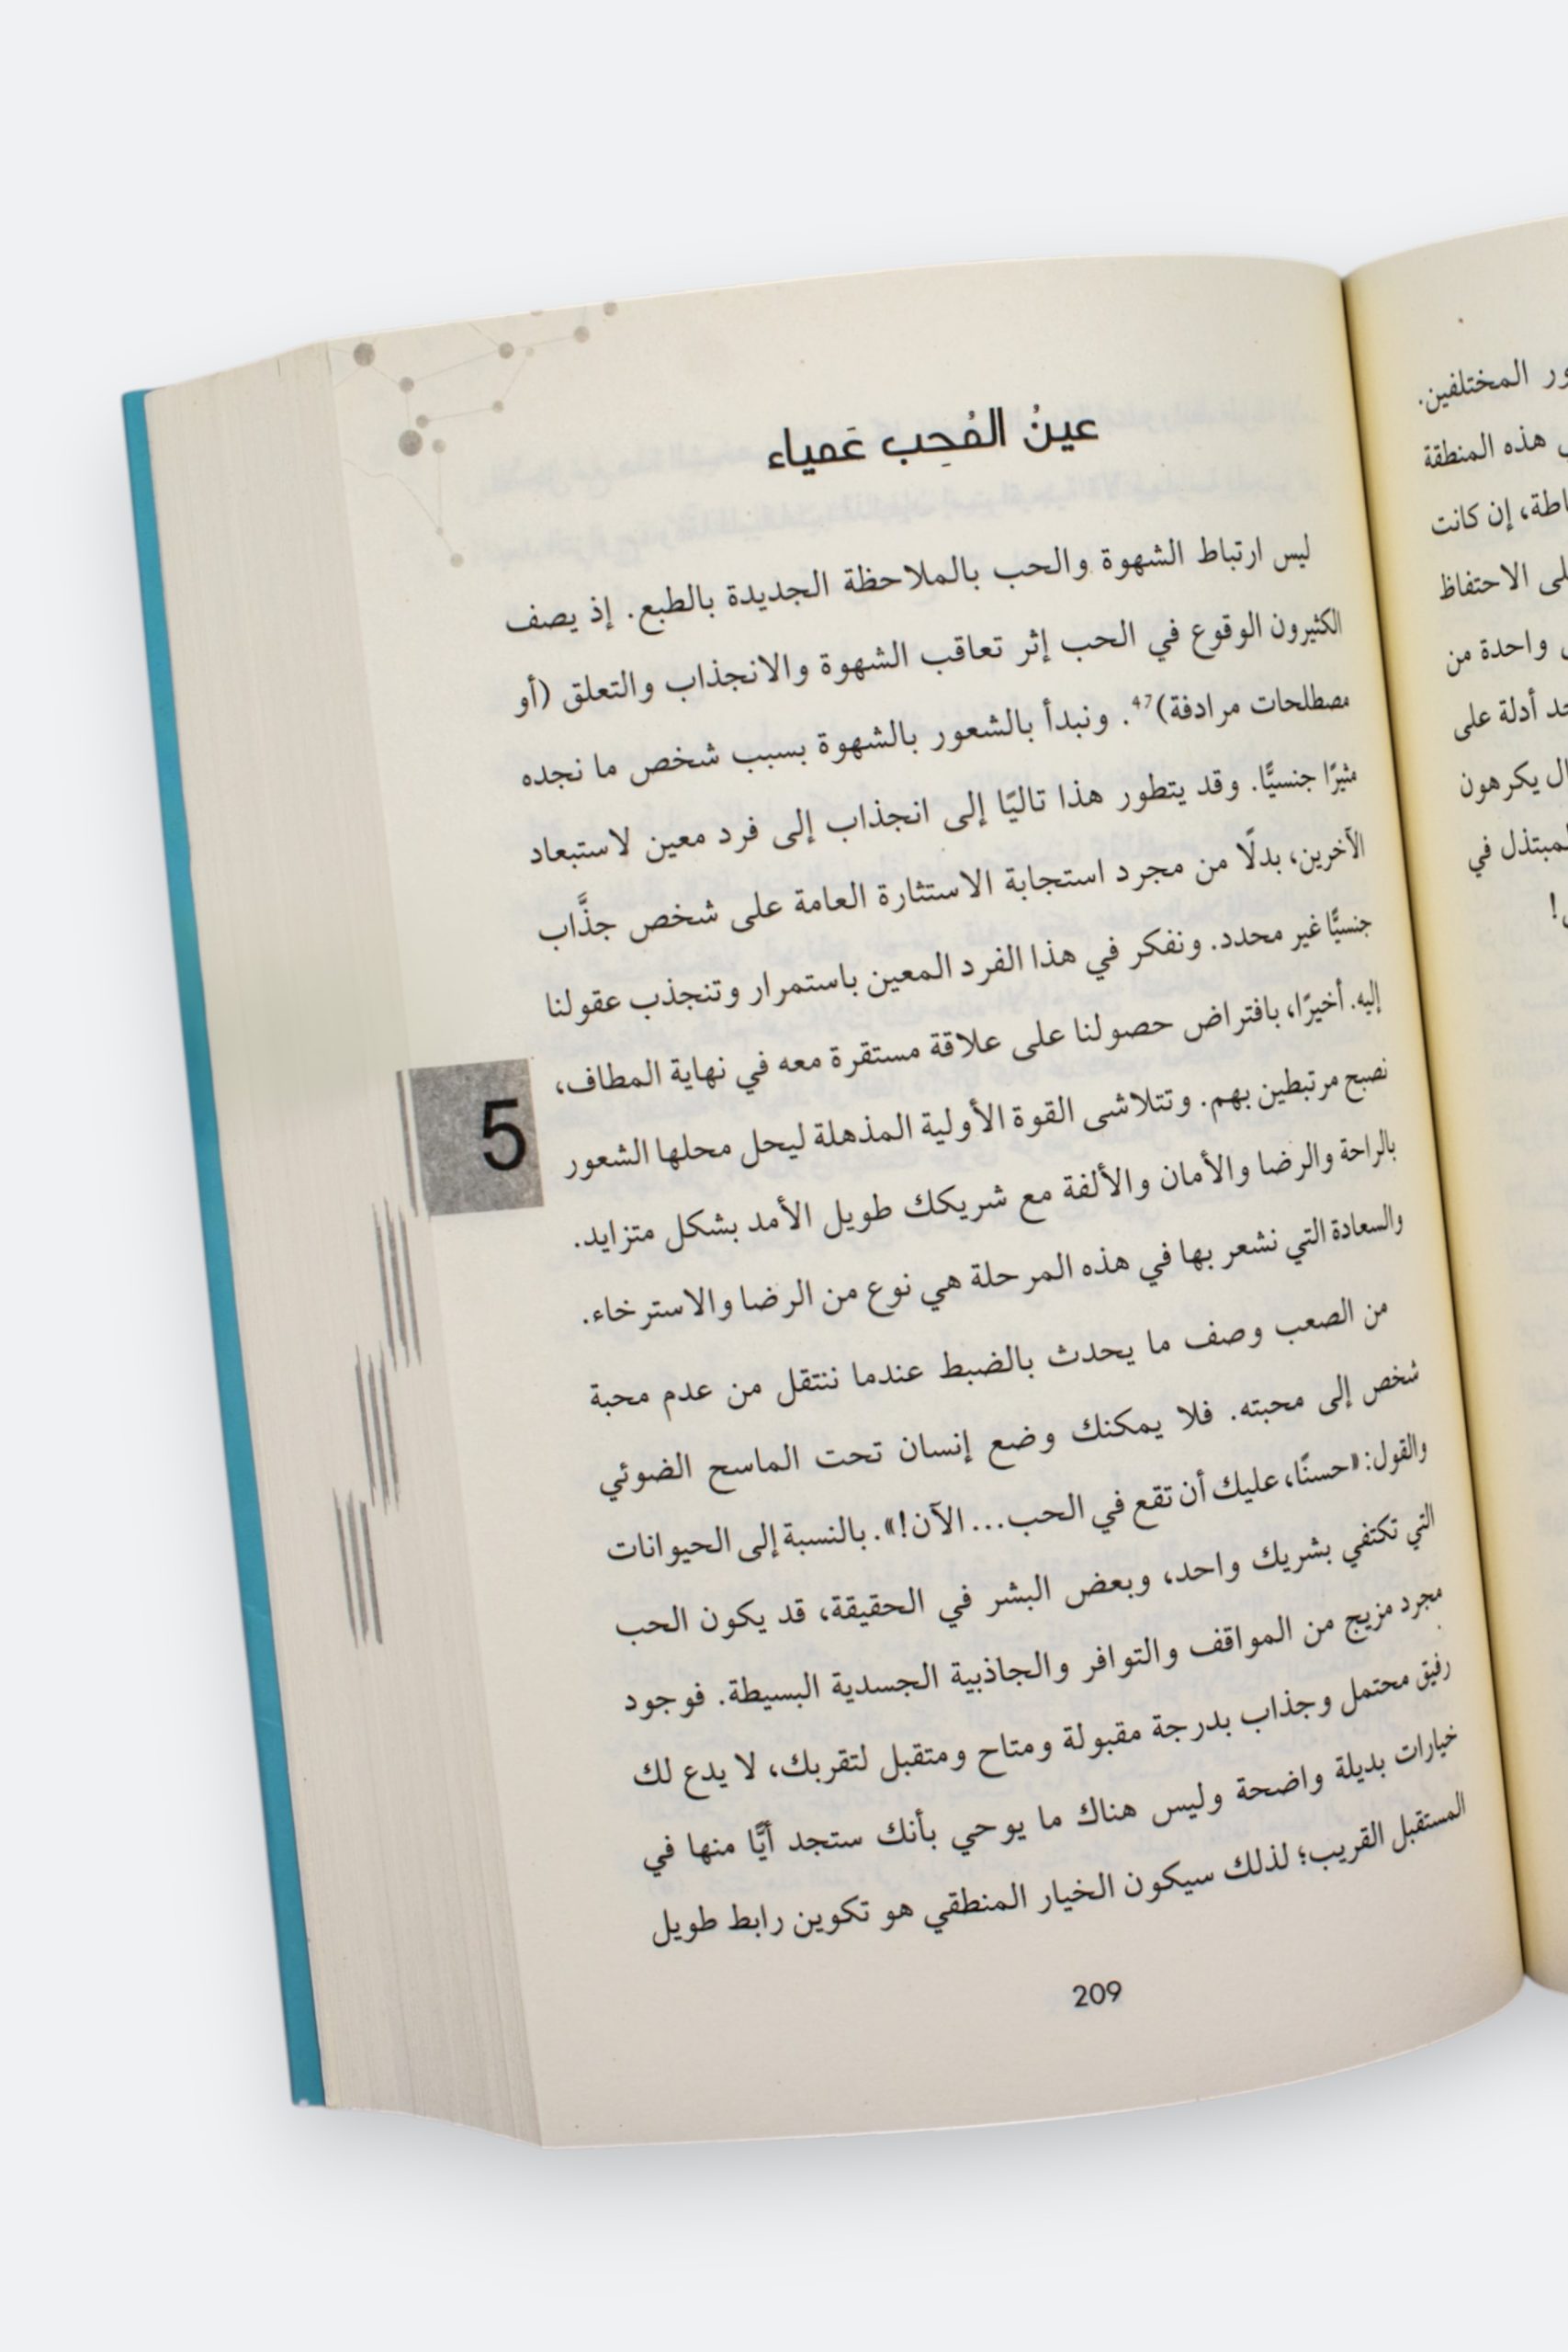 ور المختلفين.
هذه المنطقة
اطة، إن كانت
لى الاحتفاظ
واحدة من
جد أدلة على
ال يكرهون
لمبتذل في
عينُ المُحِب عَمياء
ليس ارتباط الشهوة والحب بالملاحظة الجديدة بالطبع. إذ يصف
الكثيرون الوقوع في الحب إثر تعاقب الشهوة والانجذاب والتعلق (أو
مصطلحات مرادفة)47. ونبدأ بالشعور بالشهوة بسبب شخص ما نجده
مثيرًا جنسيًّا. وقد يتطور هذا تاليًا إلى انجذاب إلى فرد معين لاستبعاد
الآخرين، بدلًا من مجرد استجابة الاستثارة العامة على شخص جذَّاب
جنسيًّا غير محدد. ونفكر في هذا الفرد المعين باستمرار وتنجذب عقولنا
إليه. أخيرًا، بافتراض حصولنا على علاقة مستقرة معه في نهاية المطاف،
نصبح مرتبطين بهم. وتتلاشى القوة الأولية المذهلة ليحل محلها الشعور
بالراحة والرضا والأمان والألفة مع شريكك طويل الأمد بشكل متزايد.
والسعادة التي نشعر بها في هذه المرحلة هي نوع من الرضا والاسترخاء.
من الصعب وصف ما يحدث بالضبط عندما ننتقل من عدم محبة
شخص إلى محبته. فلا يمكنك وضع إنسان تحت الماسح الضوئي
والقول: «حسنًا، عليك أن تقع في الحب... الآن!». بالنسبة إلى الحيوانات
التي تكتفي بشريك واحد، وبعض البشر في الحقيقة، قد يكون الحب
مجرد مزيج من المواقف والتوافر والجاذبية الجسدية البسيطة. فوجود
رفيق محتمل وجذاب بدرجة مقبولة ومتاح ومتقبل لتقربك، لا يدع لك
خيارات بديلة واضحة وليس هناك ما يوحي بأنك ستجد أيًّا منها في
المستقبل القريب؛ لذلك سيكون الخيار المنطقي هو تكوين رابط طويل
5
209